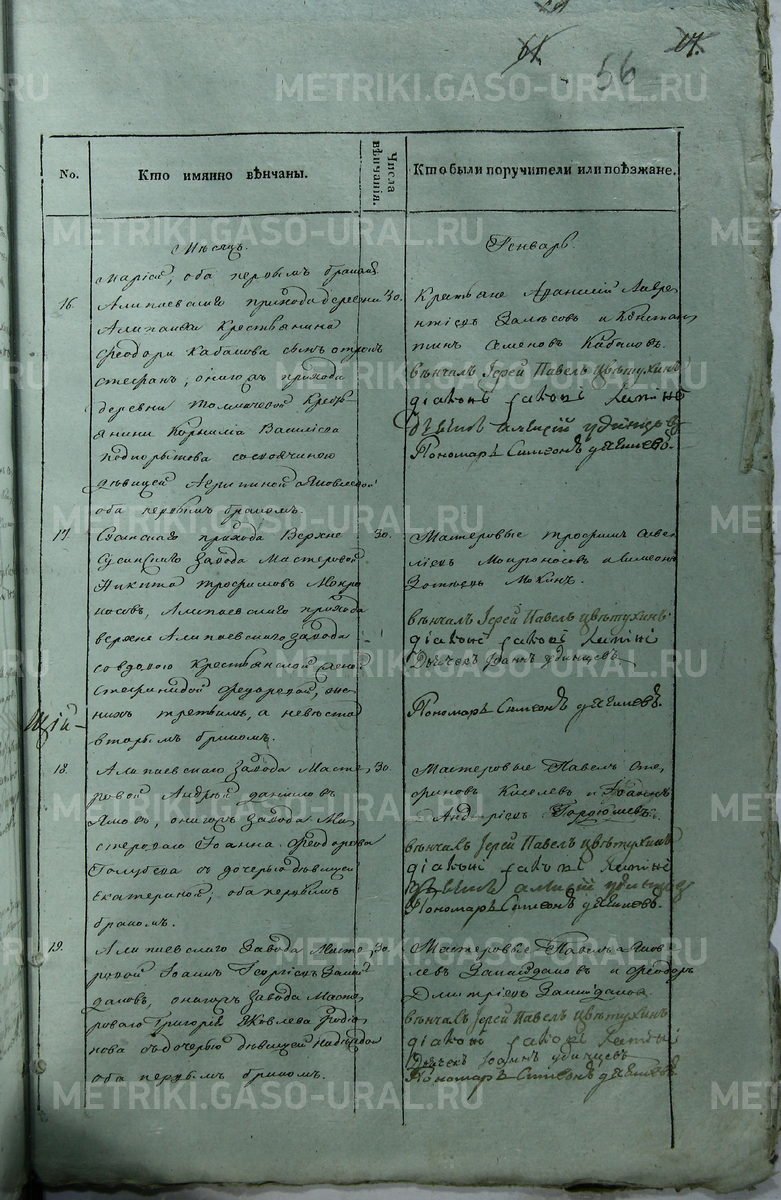 61. 56 17.
No.
Кто имянно вѣнчаны.
Числа вѣнчанія.
Кто были поручители или поѣзжане.
Мѣсяцъ. Генварь.
Маріей, оба первымъ бракомъ
16. Алапаевскаго прихода деревни
Алапаихи Крестьянина
Феодора Кабакова сынъ отрокъ
Стефанъ, оногожъ прихода
деревни Толмачевой Кресть
янина Корнилія Василіева
дѣвицей
оба первымъ бракомъ.
30.
Крестьяне Афанасій Лавре
нтіевъ и Констан
тинъ Семеновъ Кабаковъ.
вѣнчалъ Іерей Павелъ Цвѣтухинъ
діаконъ Іаковъ
Алексій Удинцовъ
Пономарь Симеонъ
17. Сусанскаго прихода Верхне
Сусанскаго Завода Мастеровой
Никита Трофимовъ Мокро
носовъ, Алапаевскаго прихода
верхне Алапаевскаго завода
со вдовою Крестьянской женой
Феодоровой, же
нихъ третьимъ, а невѣста
вторымъ бракомъ.
30.
Мастеровые Трофимъ Саве
ліевъ Мокроносовъ и Симеонъ
вѣнчалъ Іерей Павелъ Цвѣтухинъ
діаконъ Іаковъ
Дьячекъ Іоаннъ Удинцевъ
Пономарь Симеонъ
18. Алапаевскаго Завода Масте
ровой Андрей Даниловъ
оногожъ Завода Ма
стероваго Іоанна Феодорова
Голубева съ дочерью дѣвицей
Екатериной, оба первымъ
бракомъ.
30.
Мастеровые Павелъ
Киселевъ и Іоаннъ
Андріевъ
вѣнчалъ Іерей Павелъ Цвѣтухинъ
діаконъ Іаковъ
Алексій Удинцовъ
Пономарь Симеонъ
19. Алапаевскаго Завода Масте
ровой Іоаннъ Георгіевъ Замай
даловъ, оногожъ Завода Масте
роваго Григорія Яковлева Родіо
нова съ дочерью дѣвицей Надеждой
оба первымъ бракомъ.
30.
Мастеровые Павелъ Яков
левъ Замайдаловъ и Феодоръ
Дмитріевъ Замайдаловъ
вѣнчалъ Іерей Павелъ Цвѣтухинъ
діаконъ Іаковъ
Дьячекъ Іоаннъ Удинцевъ
Пономарь Симеонъ
METRIKI.GASO-URAL.RU